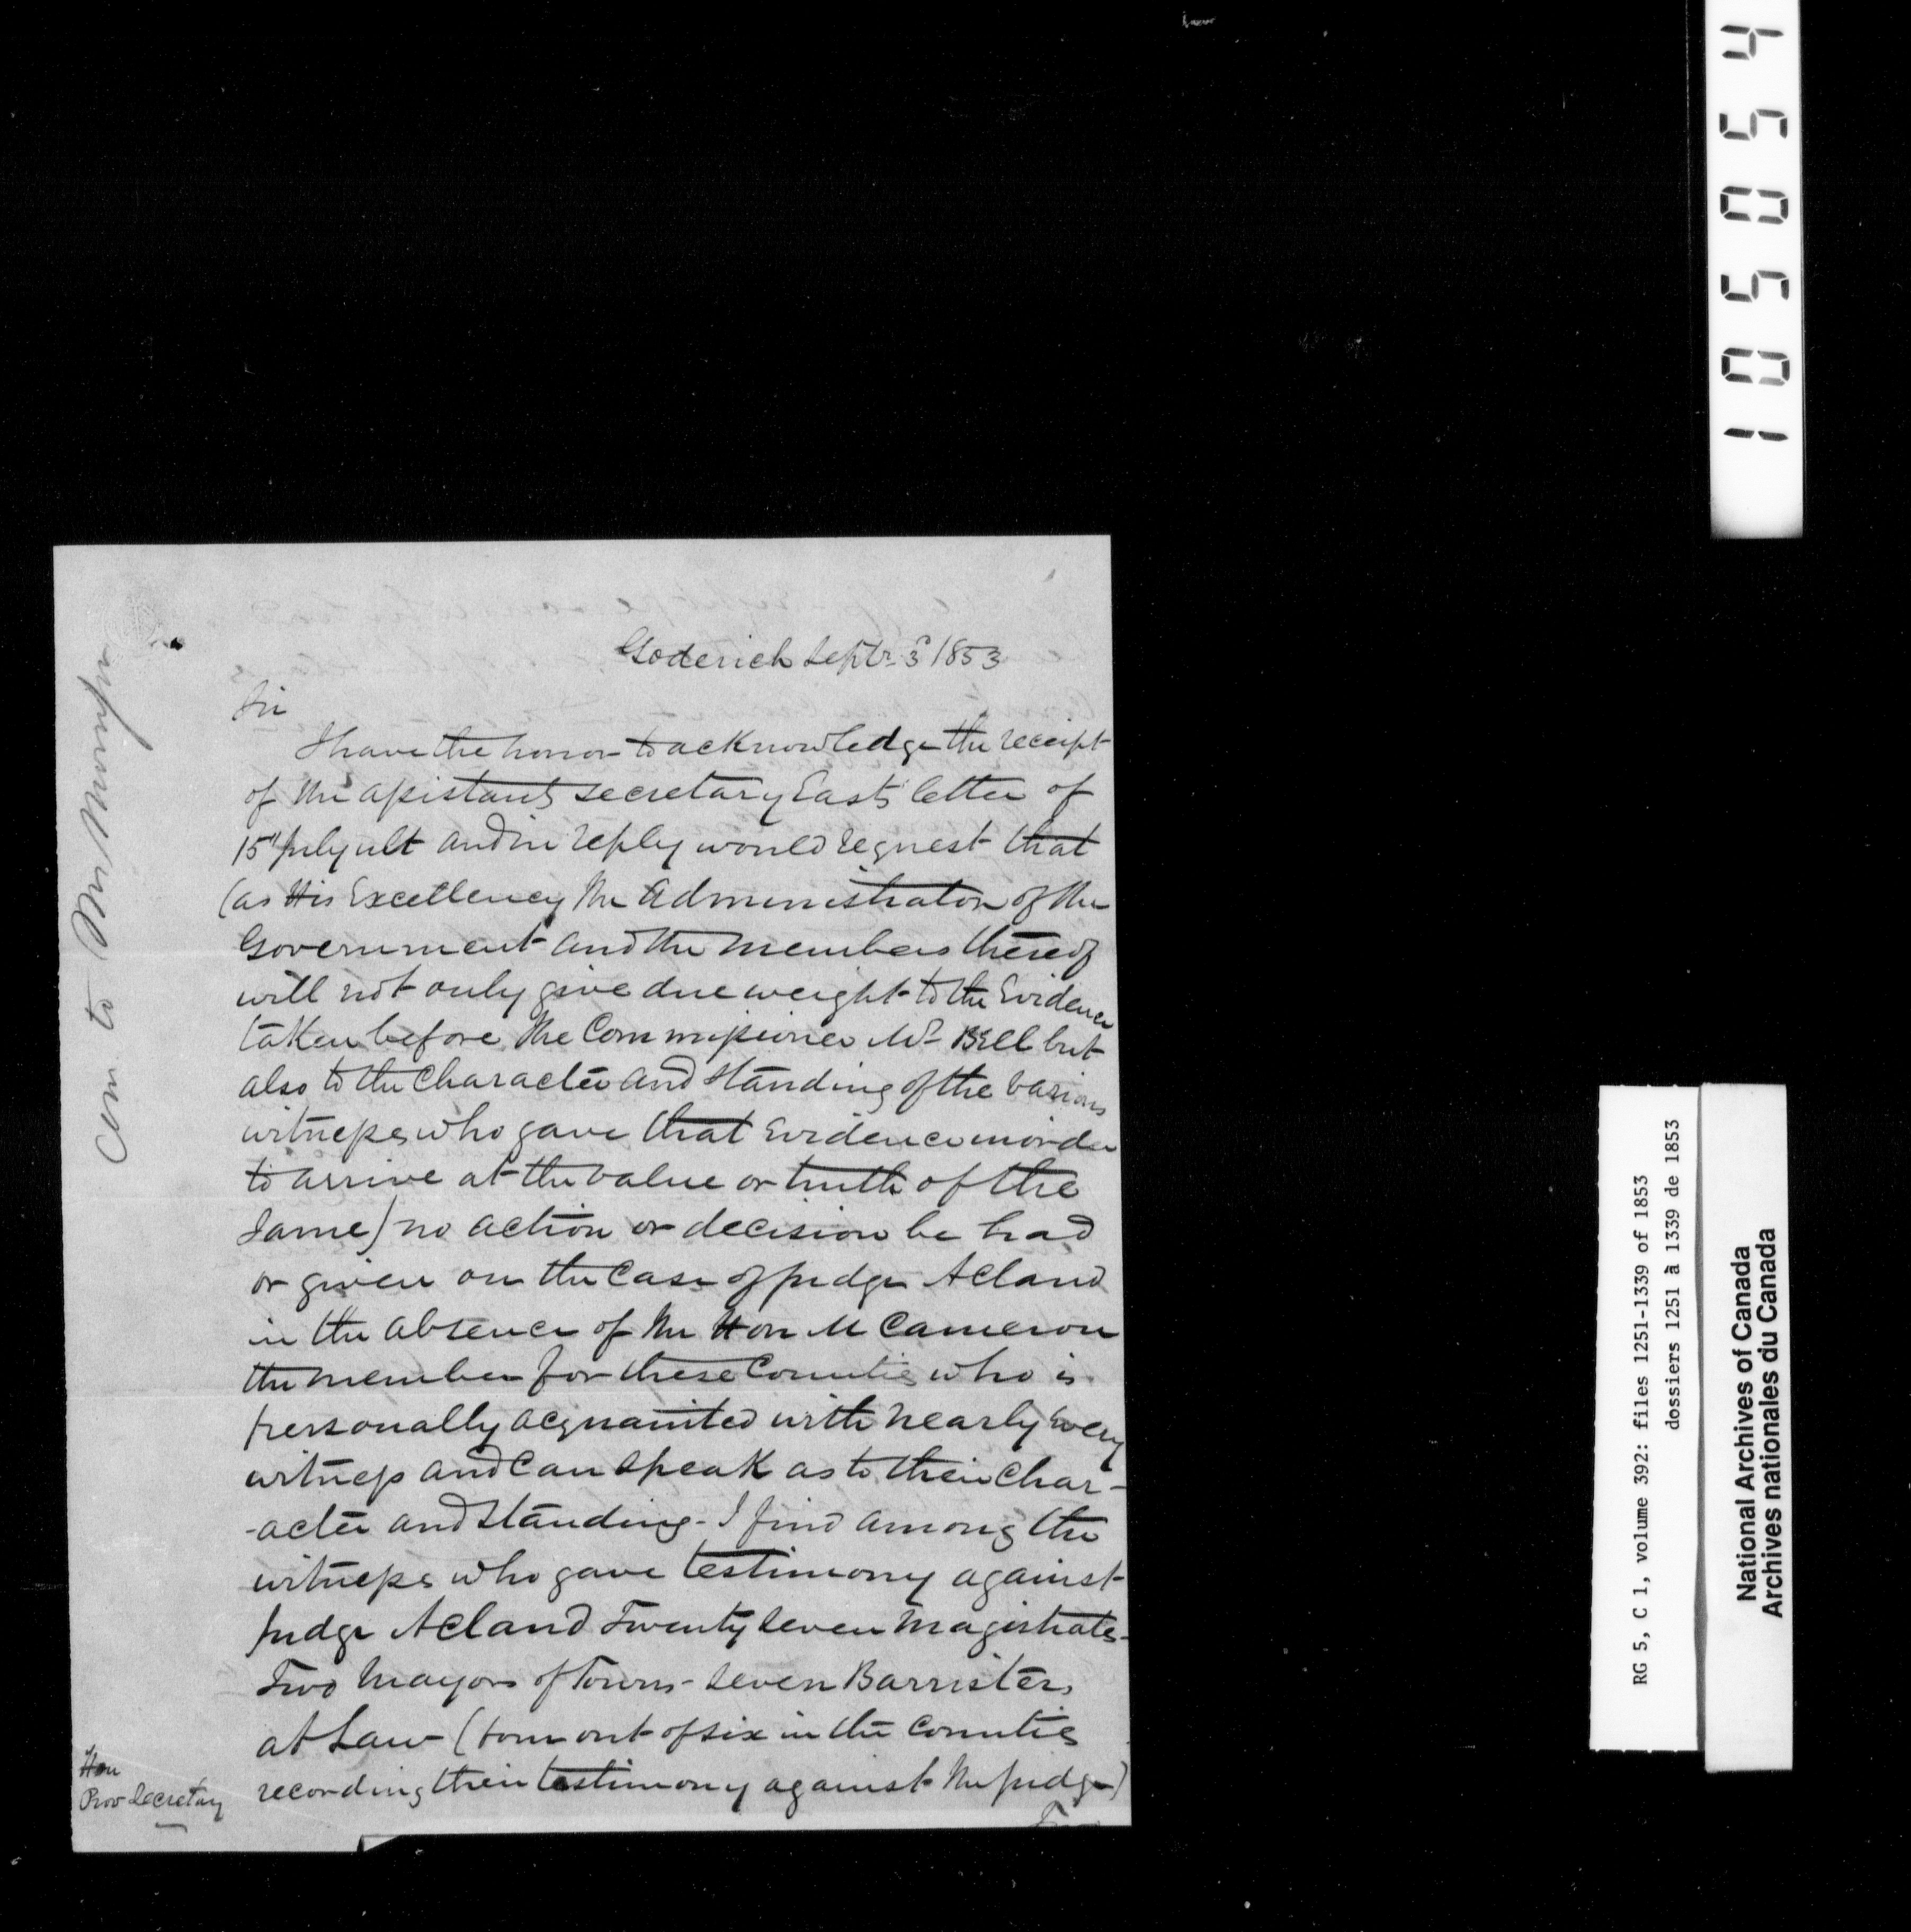 Goderich Septr 3d 1853
Sir
I have the honor to acknowledge the receipt
of the assistant secretary East's letter of
15th July ult and in reply would request that
(as His Excellency the Administrator of the
Government and the members thereof
will not only give due weight to the Evidence
taken before the Commissioner Mr Bell but
also to the Character and standing of the various
witnesses who gave that Evidence in order
to arrive at the value or truth of the
same) no action or decision be had
or given on the Case of Judge Acland
in the absence of the Hon M Cameron
the member for these Counties who is
personally acquainted with nearly every
witness and can speak as to their Char-
-acter and standing - I find among the
witnesses who gave testimony against
Judge Acland Twenty seven Magistrates -
Two Mayors of Towns - seven Barristers
at Law (four out of six in the Counties
recording their testimony against the Judge)
Hon
Prov Secretary
Com to Mr
10 50 54
RG 5, C 1, volume 392: files 1251-1339 of 1853
dossiers 1251 à 1339 de 1853
National Archives of Canada
Archives nationales du Canada